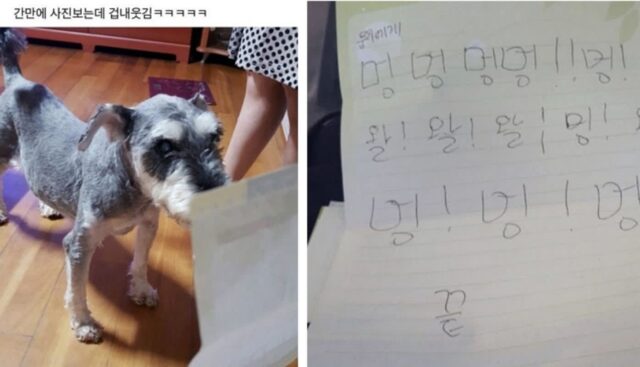 간만에 사진보는데 겁내웃김ㅋㅋㅋㅋㅋ
멍 멍 멍멍!!멍!
왈! 왈! 왈! 멍!
멍! 멍! 멍
끝